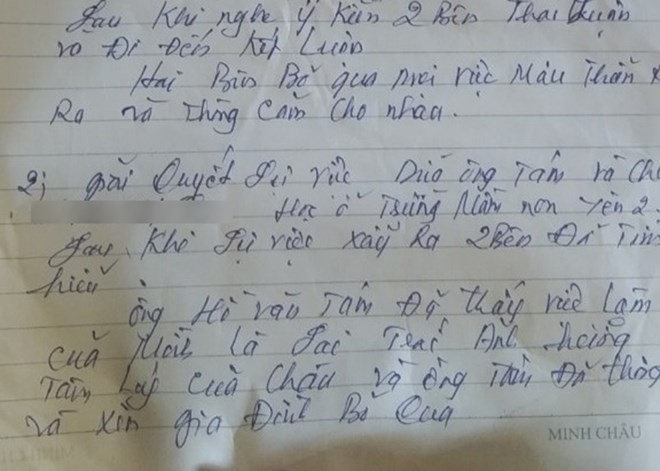 Sau Khi nghe ý Kiến 2 Bên Thai Luận
và Đi Đến Kết Luận
Hai Bên Bỏ qua mọi việc Mâu Thẫn
Ra và thông Cảm Cho nhau.
2; giải Quyết Sự việc Duả ông Tâm và
Học ở Trường Mầm non Yên 2
Sau Khi Sự việc xảy Ra 2 Bên Đã Tìm
hiểu
ông Hồ văn Tâm Đã thấy việc Làm
cuả Mình Là Sai Trái Ảnh hưởng
Tâm Lý cuả Cháu và ông Tâm Đã
và xin gia Đình Bỏ Qua
MINH CHÂU